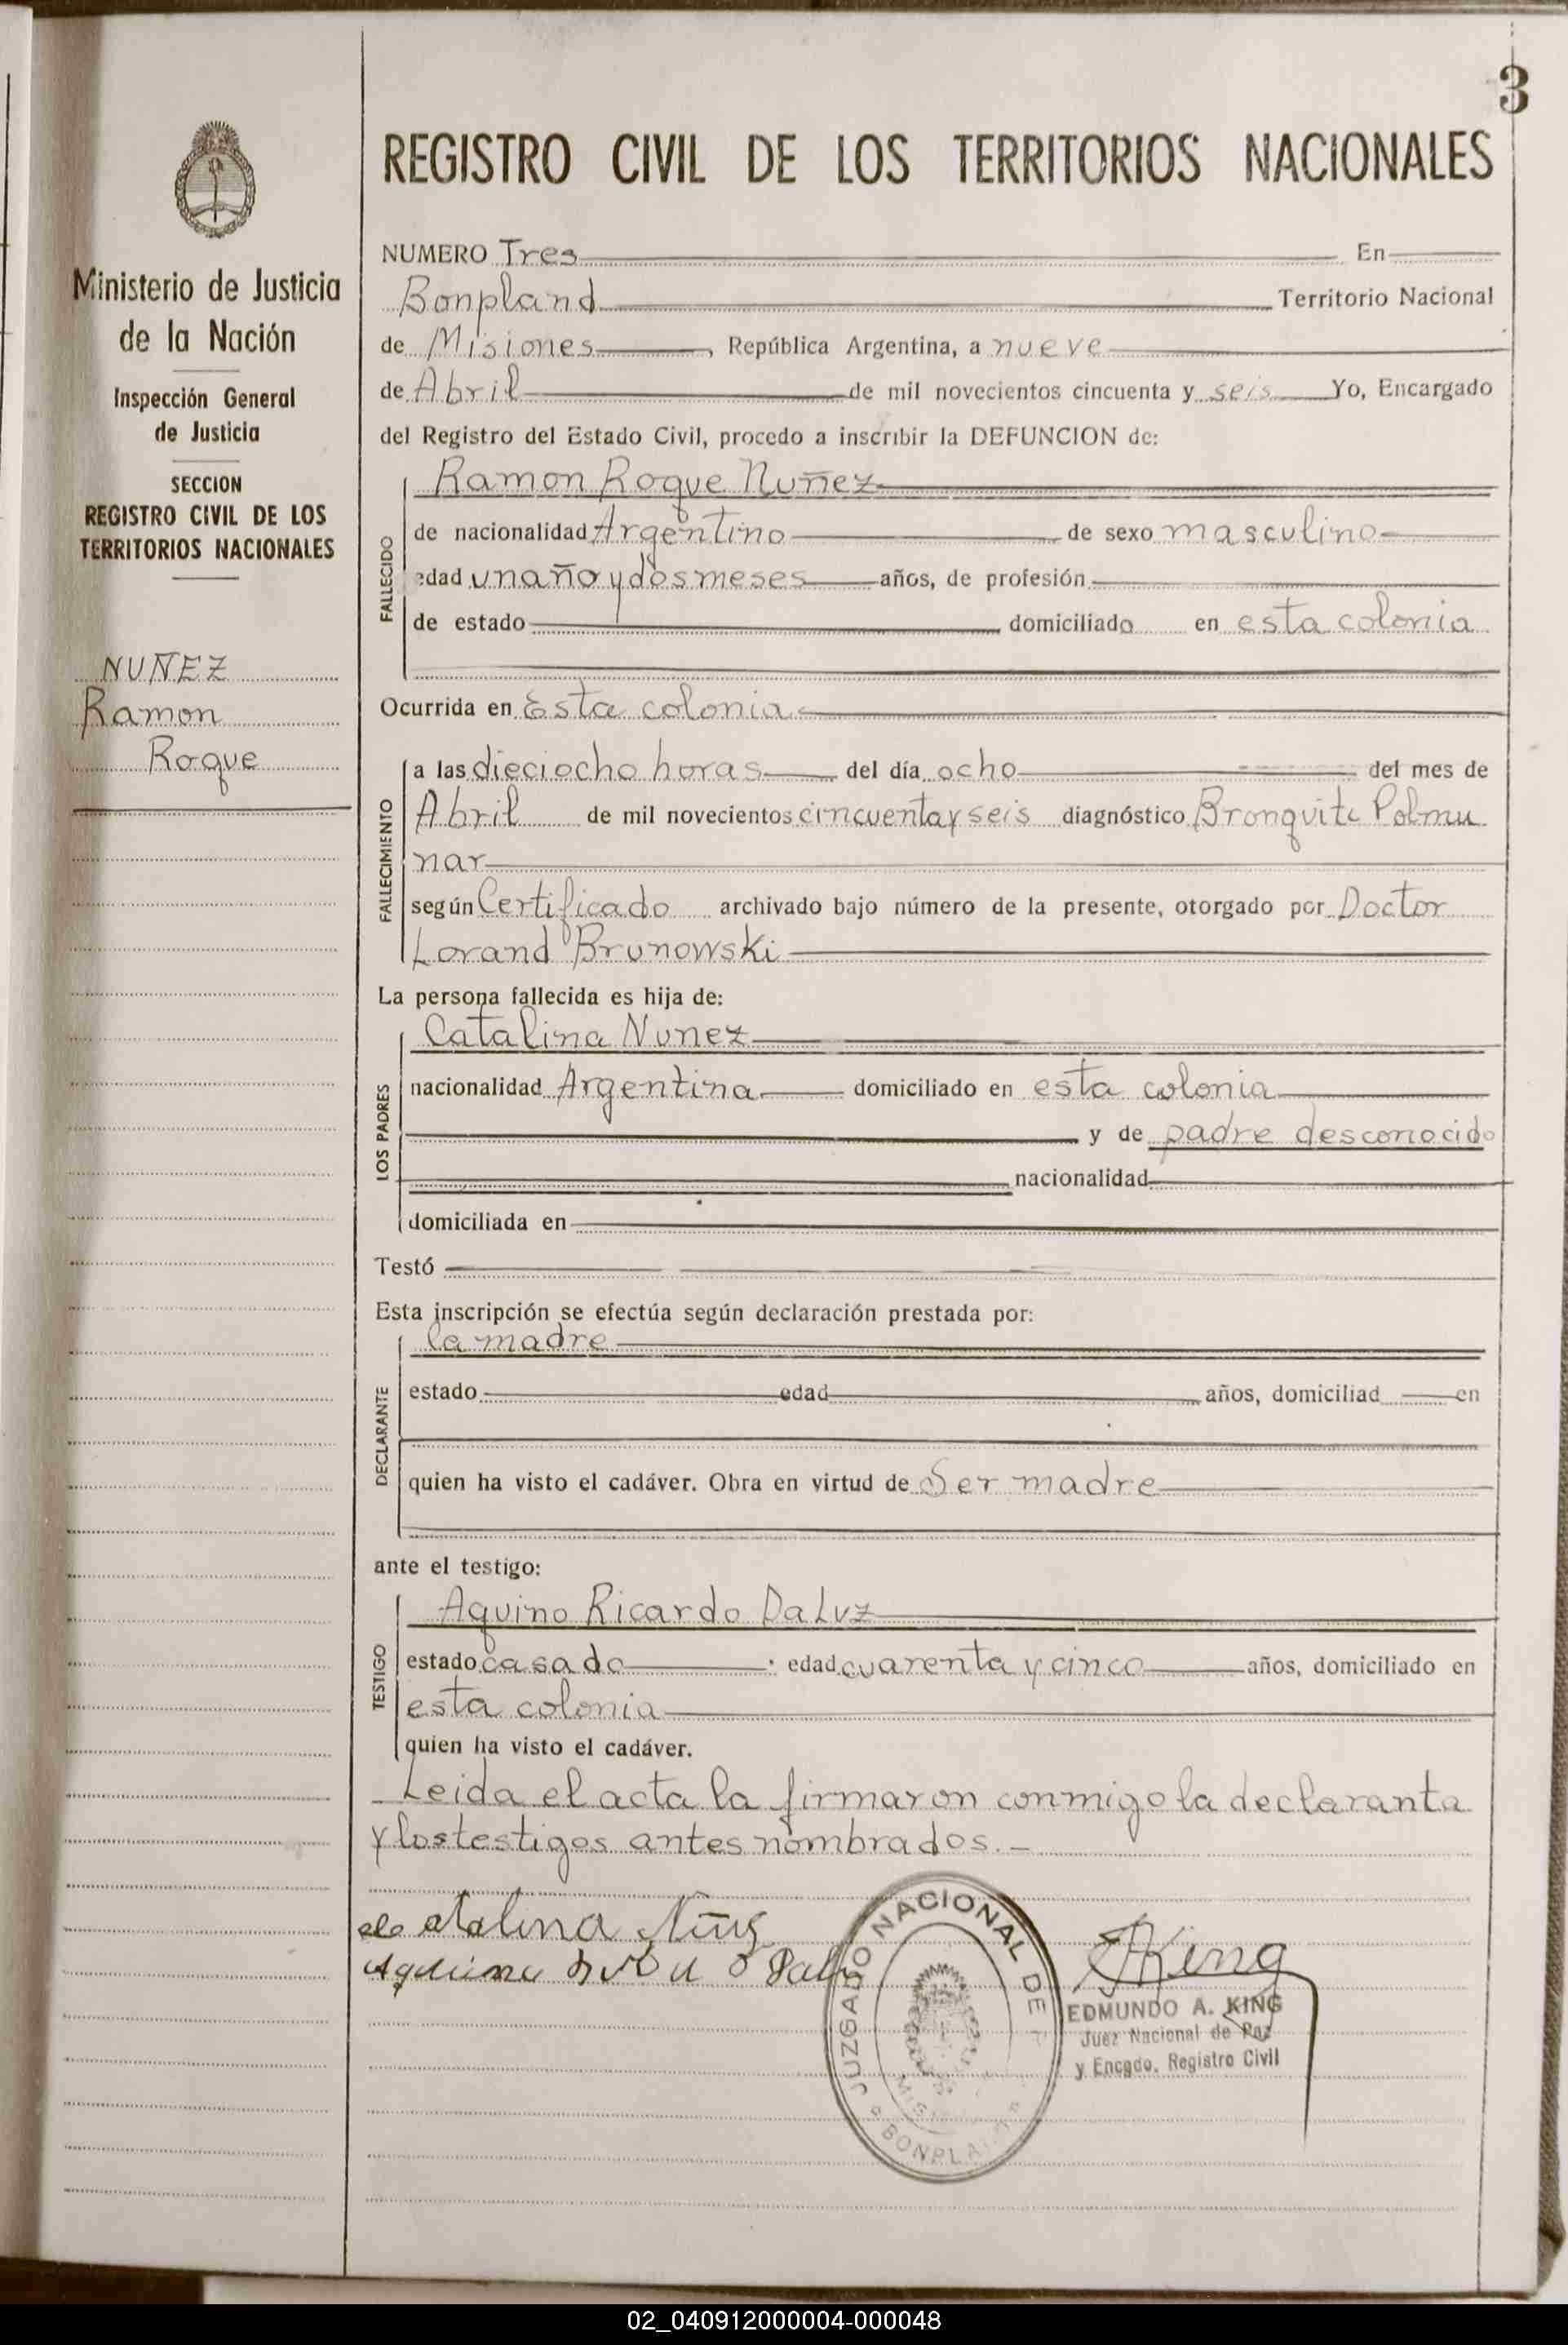 3
Ministerio de Justicia
de la Nación
Inspección General
de Justicia
SECCION
REGISTRO CIVIL DE LOS
TERRITORIOS NACIONALES
NUÑEZ
Ramon
Roque
REGISTRO CIVIL DE LOS TERRITORIOS NACIONALES
NUMERO Tres En
Bonpland Territorio Nacional
de Misiones, República Argentina, a nueve
de Abril de mil novecientos cincuenta y seis Yo, Encargado
del Registro del Estado Civil, procedo a inscribir la DEFUNCION de:
FALLECIDO
Ramon Roque Nuñez
de nacionalidad Argentino de sexo masculino
edad un año y dos meses años, de profesión
de estado domiciliado en esta colonia
Ocurrida en Esta colonia
FALLECIMIENTO
a las dieciocho horas del día ocho del mes de
Abril de mil novecientos cincuenta y seis diagnóstico Bronquite Polmu
nar
según Certificado archivado bajo número de la presente, otorgado por Doctor
Lorand Brunowski
La persona fallecida es hija de:
LOS PADRES
Catalina Nunez
nacionalidad Argentina domiciliado en esta colonia
y de padre desconocido
nacionalidad
domiciliada en
Testó
Esta inscripción se efectúa según declaración prestada por:
DECLARANTE
la madre
estado edad años, domiciliad en
quien ha visto el cadáver. Obra en virtud de Ser madre
ante el testigo:
TESTIGO
Aquino Ricardo DaLuz
estado casado edad cuarenta y cinco años, domiciliado en
esta colonia
quien ha visto el cadáver.
Leida el acta la firmaron conmigo la declaranta
y los testigos antes nombrados.-
JUZGADO NACIONAL DE
BONPLA
King
EDMUNDO A. KING
Juez Nacional de Paz
y Encgdo. Registro Civil
02_040912000004-000048